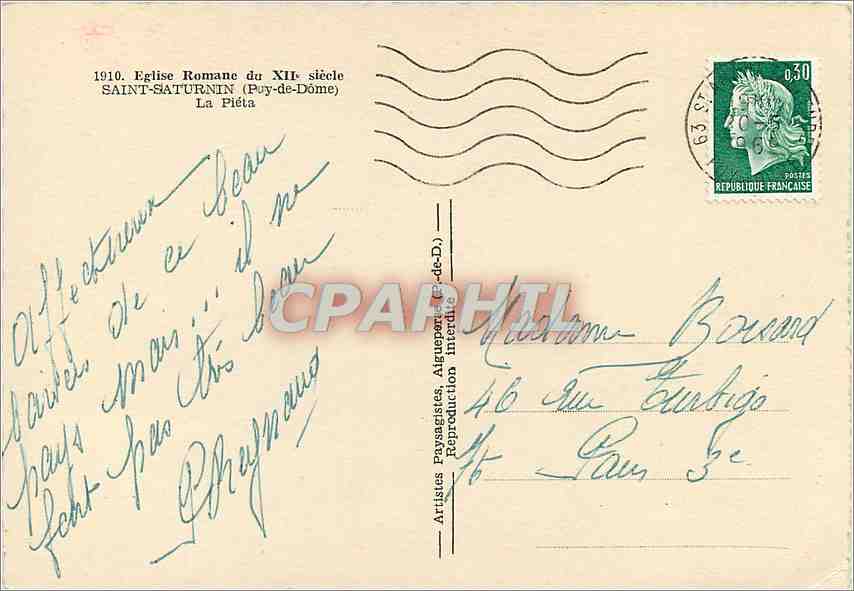 1910. Eglise Romane du XIIe siècle
SAINT-SATURNIN (Puy-de-Dôme)
La Piéta
Affectueux
baisers de ce beau
pays mais... il ne
fait pas très beau
Artistes Paysagistes, Aigueperse (P.-de-D.)
Reproduction interdite
0,30
POSTES
REPUBLIQUE FRANÇAISE
63 ST
CPARPHIL
Madame Boisard
46 rue Turbigo
Paris 3e